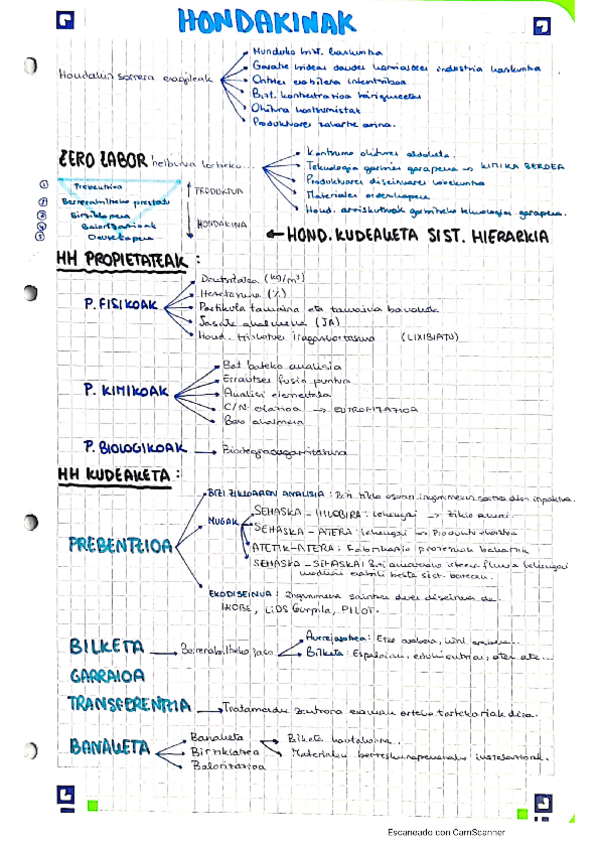 HONDAKINAK
Hondakin sorrera eragileak
Munduko bizt. hazkuntza
Garabe bidean dauden herrialdeen industria hazkuntza
Ontzien erabilera intentsiboa
Bizt. kontzentrazioa hiriguneetan
Ohitura kontsumistak
Produktuaren zabartze arina.
ZERO ZABOR helburua lortzeko...
Kontsumo ohituren aldaketa.
Teknologia garbien garapena → KIMIKA BERDEA
Produktuaren diseinuaren hobekuntza
Materialen ordezkapena
Hond. arriskutsuak garbitzeko teknologia garapena.
① Prebentzioa
② Berrerabiltzeko prestatu
③ Birziklapena
④ Balorizazioak
⑤ Deusezpena
PRODUKTUA
HONDAKINA
← HOND. KUDEAKETA SIST. HIERARKIA
HH PROPIETATEAK :
P. FISIKOAK
Dentsitatea (kg/m³)
Hezetasuna (%)
Partikula tamaina eta tamaina banaketa
Jasate ahalmena (JA)
Hond. trinkotuen iragazkortasuna (LIXIBIATU)
P. KIMIKOAK
Bat bateko analisia
Errautsen fusio puntua
Analisi elementala
C/N erlazioa → EUTROFIZAZIOA
Bero ahalmena
P. BIOLOGIKOAK → Biodegradagarritasuna
HH KUDEAKETA :
PREBENTZIOA
BIZI ZIKLOAREN ANALISIA : Bizi ziklo osoan ingurumenean sortua den inpaktua.
MUGAK
SEHASKA – HILOBIRA : Lehengai → Ziklo amai.
SEHASKA – ATERA : Lehengai → Produktu ekoiztea
ATETIK – ATERA : Fabrikazio prozesuak bakarrik
SEHASKA – SEHASKA :
EKODISEINUA : Ingurumena
IHOBE, LiDS Gurpila, PILOT.
BILKETA → Berrerabiltzeko
Aurrejasotzea : Etxe
Bilketa : Espaloian, edukiontzian, atez ate...
GARRAIOA
TRANSFERENTZIA → Tratamendu zentrora eraman arteko tartekariak dira.
BANAKETA
Banaketa
Birziklatzea
Balorizazioa
Bilketa
Materialen berreskurapenerako instalazioak.
Escaneado con CamScanner